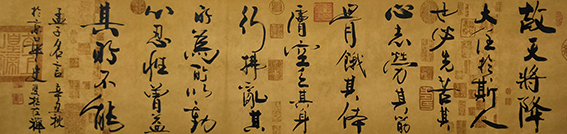 故天將降
大任於斯人
也必先苦其
心志勞其筋
骨餓其体
膚空乏其身
行拂亂其
所為所以動
心忍性曾益
其所不能
孟子名言